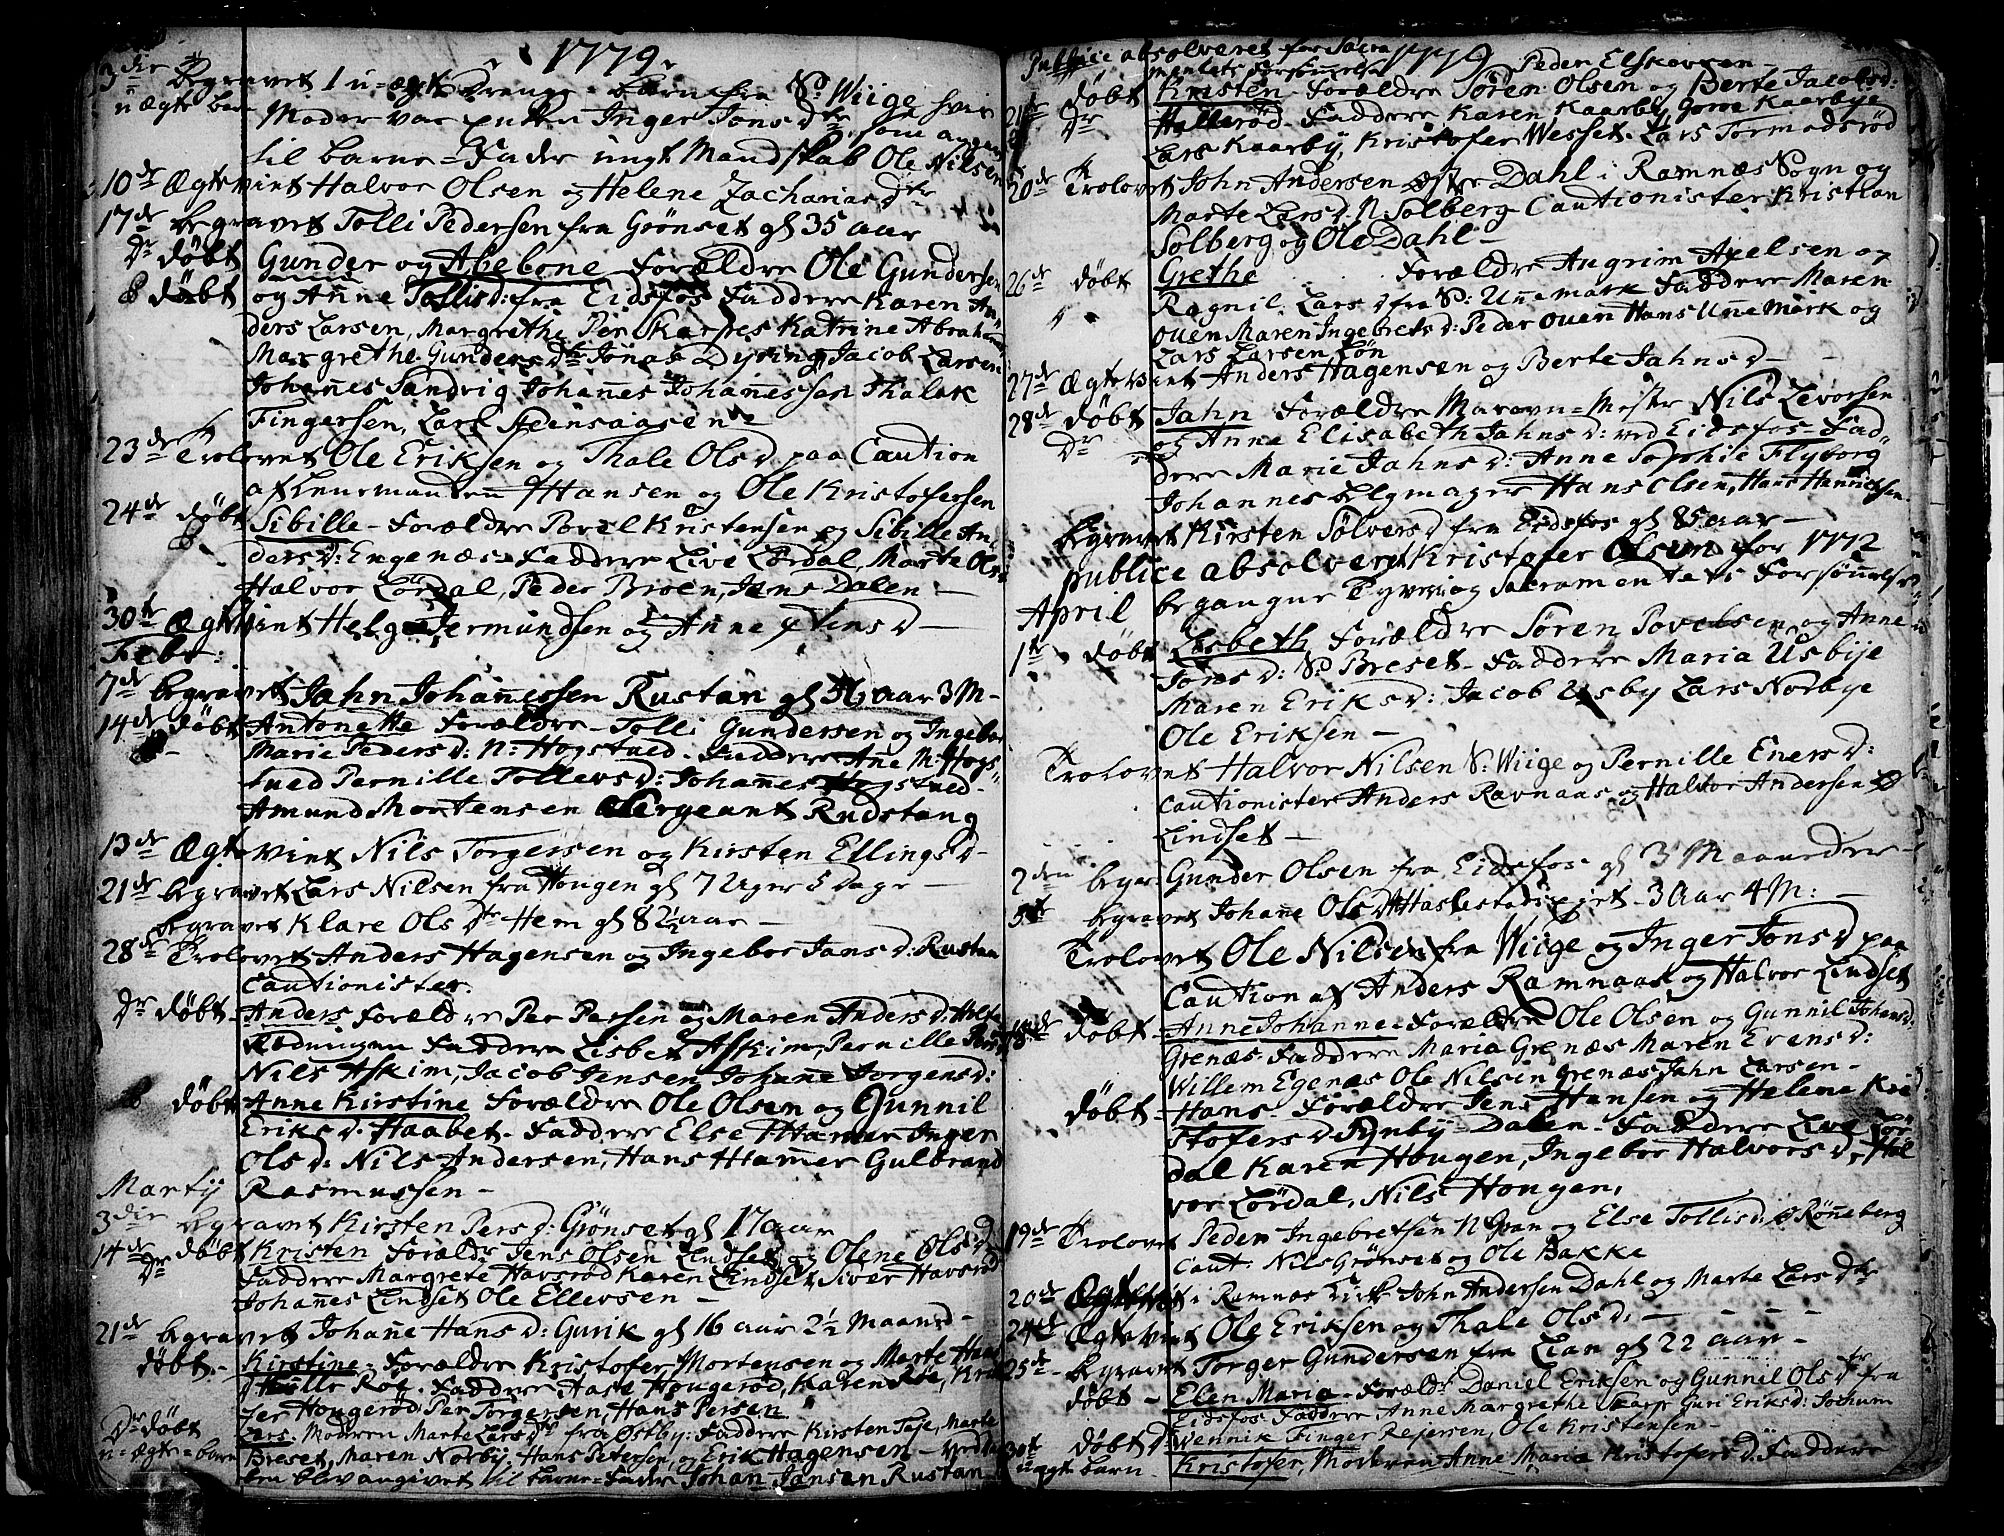 1779
3die Begravet 1 u-ægte Drenge-barn fra Nº Wiige hvis
u ægte barn Moder var Inger Jonsdtr som angav
til barne-Fader ungt Mandskab Ole Nilsen
10de Ægteviet Halvor Olsen og Helene Zachariasdtr
17de begravet Tolli Pedersen fra Grønset gl 35 aar
Do døbt Gunder og Abebone Forældre Ole Gundersen
døbt og Anne Tollisd: fra Eidsfos Faddere Karen An
ders Larsen, Margrethe Per Skarpes Katrine Abraham
Margrethe Gundersdtr Jonas Dyring Jacob Larsen
Johannes Sandvig Johannes Johannessen Thalak
Fingersen, Lars Adensaasen
23de Trolovet Ole Eriksen og Thale Olsd paa Caution
af Hansen og Ole Kristofersen
24de døbt Sibille - Forældre Povel Kristensen og Sibille An
dersd: Engenæs - Faddere Live Lørdal, Marte Ols
Halvor Lørdal, Peder Broen, Jens Dalen -
30te Ægteviet Helge Germundsen og Anne Jensd -
Febr:
7de begravet Jahn Johannessen Rustan gl 56 aar 3 M -
14de døbt Antonette Forældre - Tolli Gundersen og Ingebor
Marie Pedersd: N: Hogstved. Faddere Ane M: Hogs
tved Pernille Tollevsd: Johannes Hogstved -
Amund Mortensen Sergeant Rudstang
13de Ægteviet Nils Torgersen og Kirsten Ellingsd -
21de begravet Lars Nilsen fra Hougen gl 7 Uger 5 Dage -
begravet Klare Olsdtr Hem gl 82½ aar -
28de Trolovet Anders Hagensen og Ingebor Jansd: Rustan
Cautionister.
Do døbt Anders Forældre Per Persen og Maren Andersd:
Rødningen Faddere Lisbet Askim, Pernille Pers
Nils Askim, Jacob Jensen Johanne Jorgensd:
døbt Anne Kirstine Forældre Ole Olsen og Gunnil
Eriksd: Haabet - Faddere Else Hamer Inger
Olsd: Nils Andersen, Hans Hamer Gulbrand
Martij Rasmussen -
3die Begravet Kirsten Persd: Grønset gl 17 aar
14de døbt Kristen Forældr Jens Olsen Lindset og Olene Olsd
Do Faddere Margrete Havsrød Karen Lindset, Siver Havsrød
Johannes Lindset Ole Ellevsen -
21de begravet Johane Hansd: Gurik gl 16 aar 2½ Maaned -
døbt - Kirstine - Forældre Kristofer Mortensen og Marte Hans
Rof. Faddere Aase Hougerød, Karen Roe, Kris
fer Hougerød Per Torgersen, Hans Persen
Do døbt Lars: Moderen Marte Larsdtr fra Østby: Faddere Kirsten Teje, Marte
u-ægte-barn Breset, Maren Norby, Hans Petersen, og Erik Hagensen -
blev angivet til barne-Fader Johan Jansen Rustan

Publice absolveret for Sacra 1779 Peder Elskersen -
mentets Forsømmelse
21de døbt Kristen - Forældre Søren Olsen og Berte Jacobsd:
Do Hellerød - Faddere Karen Kaarby Gove Kaarbye
Lars Kaarby, Kristofer Wesset - Lars Tormodsrød
20de Trolovet John Andersen Østre Dahl i Ramnæs Sogn og
Marte Larsd: N Solberg Cautionister Kristian
Solberg og Ole Dahl -
26de døbt Grethe Forældre Angrim Axelsen og
Ragnil Larsd fra Nº: Unnemark Faddere Maren
Ouen Maren Ingebretsd: Peder Ouen Hans Unnemark og
Lars Larsen Løn
27de Ægteviet Anders Hagensen og Berte Jahnsd -
28de døbt Jahn Forældre Masovn-Mester Nils Levorsen
Do og Anne Elisabeth Jahnsd: ved Eidsfos - Fad
dere Marie Jahnsd: Anne Sophie Flyborg
Johannes Belgmager Hans Olsen, Hans Henriksen
begravet Kirsten Sølversd fra Eidsfos gl 85 aar -
publice absolveret Kristofer Olsen for 1772
April begangne Tyveri og Sacramentets Forsømmelse
1te døbt Lisbeth Forældre Søren Povelsen og Anne
Jonsd: Nº Breset - Faddere Maria Usbije
Maren Eriksd: Jacob Usby Lars Norbye
Ole Eriksen -
Trolovet Halvor Nilsen Nº: Wiige og Pernille Enersd:
Cautionister Anders Ravnaas og Halvor Andersen
Lindset -
2den begr: Gunder Olsen fra Eidsfos gl 3 Maaneder -
5te begravet Johanne Olsd Haslestadejet - 3 Aar 4 M: -
Trolovet Ole Nilsen fra Wiige og Inger Jonsd paa
Caution af Anders Ramnaas og Halvor Lindset
18de døbt - Anne Johanne - Forældre Ole Olsen og Gunnil Johansd:
Grenæs - Faddere Maria Grenæs Maren Evensd:
Willem Egenæs Ole Nilsen Grenæs Jahn Larsen -
døbt - Hans - Forældre Jens Hansen og Helene Kri
stofersd Synby - Dalen - Faddere Live Lør
dal Karen Hougen, Ingebor Halvorsd, Hal
vor Lørdal, Nils Hougen,
19de Trolovet Peder Ingebretsen N Gran og Else Tollisd: Rønneberg
Caut: Nils Grønset og Ole Bakke
20de Ægteviet i Ramnæs Kirke John Andersen Dahl og Marte Larsdtr
24de Ægteviet Ole Eriksen og Thale Olsd: -
25de - Begravet Torger Gundersen fra Lian gl 22 aar -
døbt - Elen Maria - Forældr Daniel Eriksen og Gunnil Olsdtr fra
Eidsfos Faddere Anne Margrethe Skarp Guri Eriksd: Jochum
Wennik Finger Rejersen, Ole Kristensen -
30te døbt Do
uægte barn Kristofer, Moderen Anne Maria Kristofersd: Faddere